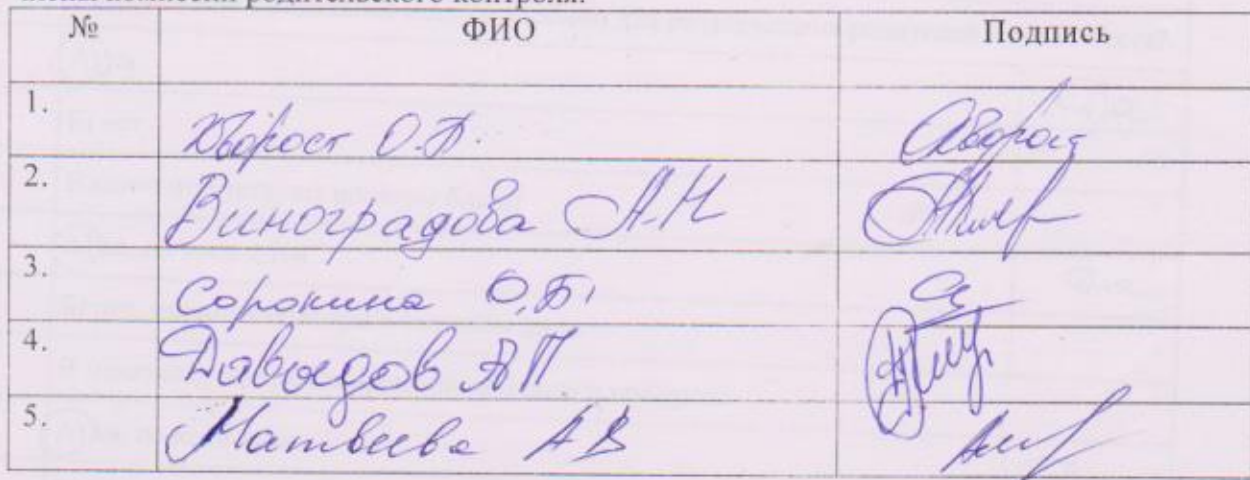 члены комиссии родительского контроля:
№ ФИО Подпись
1. Хворост О.П. Хворост
2. Виноградова А.Н
3. Сорокина О.Б.
4. Давыдов А П
5. Матвеева А В